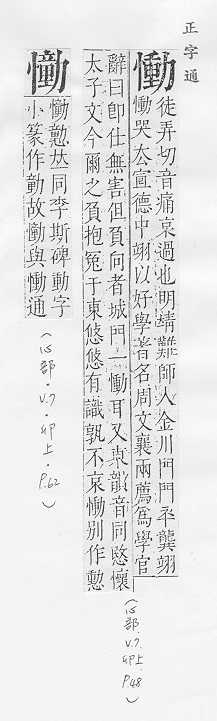 正字通
慟 徒弄切音痛哀過也明靖難師入金川門門卒龔翊
慟哭去宣德中翊以好學著名周文襄兩薦爲學官
辭曰卽仕無害但負向者城門一慟耳又東韻音同愍懷
太子文今爾之負抱冤于東悠悠有識孰不哀慟別作
(心部.V.7.卯上.P48)
憅 慟𠀤同李斯碑動字
小篆作勭故憅與慟通
(心部.V.7.卯上.P.62)